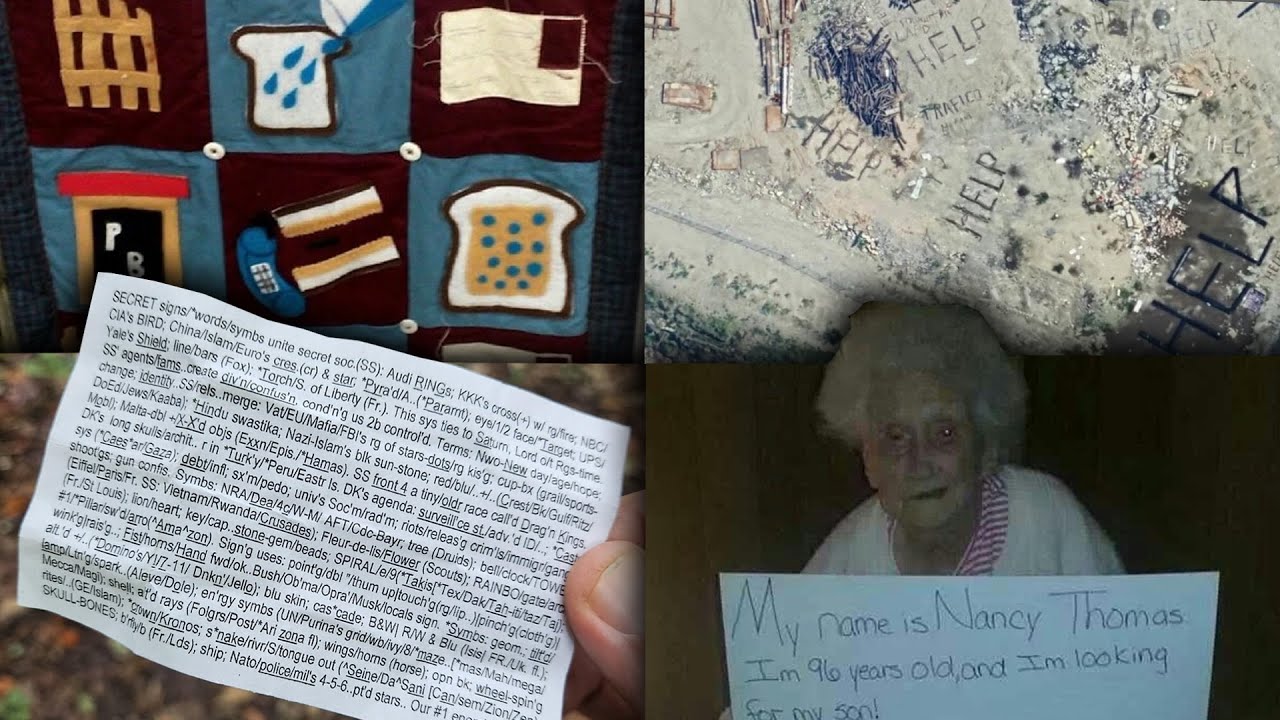 P
B
HELP
HELP
TRAFICO
HELP
HELP
HELP
HELP
SECRET signs/*words/symbs unite secret soc.(SS): Audi RINGs; KKK's cross(+) w/ rg/fire; NBC/
CIA's BIRD; China/Islam/Euro's cres.(cr) & star; *Pyra'd/A..(*Paramt); eye/1/2 face/*Target; UPS/
Yale's Shield; line/bars (Fox); *Torch/S. of Liberty (Fr.). This sys ties to Saturn, Lord o/t Rgs-time.
SS' agents/fams..create div'n/confus'n, cond'n'g us 2b control'd. Terms: Nwo-New day/age/hope;
change; identity..SS/rels..merge: Vat/EU/Mafia/FBI's rg of stars-dots/rg kis'g; cup-bx (grail/sports-
DoEd/Jews/Kaaba); *Hindu swastika; Nazi-Islam's blk sun-stone; red/blu/..+/..(Crest/Bk/Gulf/Ritz/
Mobl); Malta-dbl +/X-X'd objs (Exxn/Epis./*Hamas). SS front 4 a tiny/oldr race call'd Drag'n Kings.
DK's long skulls/archit.. r in *Turk'y/*Peru/Eastr Is. DK's agenda: surveill'ce st./adv.'d ID/..;
sys (*Caes*ar/Gaza); debt/infl; sx'm/pedo; univ's Soc'm/rad'm; riots/releas'g crim'ls/immigr/gans
shoot'gs; gun confis. Symbols: NRA/Dea/4c/W-M/ AFT/Cdc-Bayr; tree (Druids); bell/clock/TOWE
(Eiffel/Paris/Fr. SS: Vietnam/Rwanda/Crusades); Fleur-de-lis/Flower (Scouts); RAINBO/gate/arc
(Fr./St Louis); lion/heart; key/cap..stone-gem/beads; SPIRAL/e/9(*Takis*Tex/Dak/Tah-iti/taz/Taj);
#1/*Pillar/sw'd/arro(^Amazon). Sign'g uses: point'g/dbl "/thum up|touch'g(rg/lip..)|pinch'g(cloth'g)|
wink'g|rais'g.., Fist/horns/Hand fwd/ok..Bush/Ob'ma/Opra/Musk/locals sign. *Symbs: geom.; tilt'd/
alt.'d +/..(*Domino's/Y!/7-11/ Dnkn'/Jello); blu skin; cas*cade; B&W| R/W & Blu (Isis| FR./Uk. fl.);
lamp/Ltn'g/spark. (Aleve/Dole); en'rgy symbs (UN/Purina's grid/wb/ivy/8/*maze..[*mas/Mah/mega/
Mecca/Magi); shell; at'd rays (Folgrs/Post/^Ari zona fl); wings/horns (horse); opn bk; wheel-spin'g
rites/..(GE/Islam); *Crown/Kronos; s*nake/rivr/S/tongue out (^Seine/Da^Sani [Can/sem/Zion/Zen
SKULL-BONES; b'rfly/b (Fr./Lds); ship; Nato/police/mil's 4-5-6..pt'd stars.. Our #1
My name is Nancy Thomas.
Im 96 years old, and Im looking
for my son!